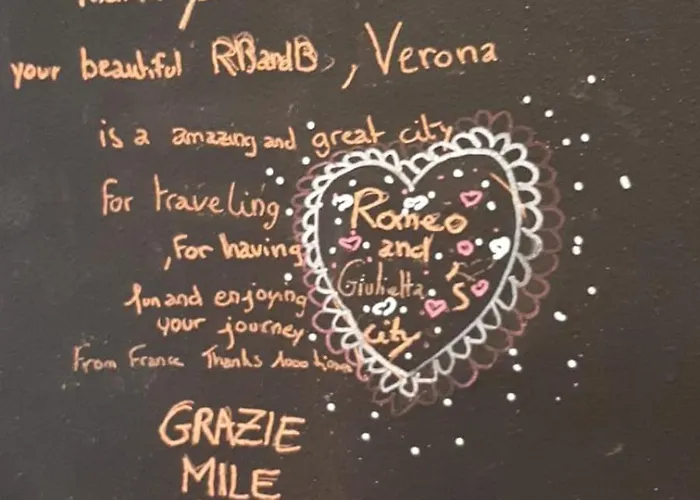 your beautiful RBandB, Verona
is a amazing and great city
for traveling.
, for having
fun and enjoying
your journey.
From France Thanks 1000
GRAZIE
MILE
Romeo
and
Giulietta
's
city